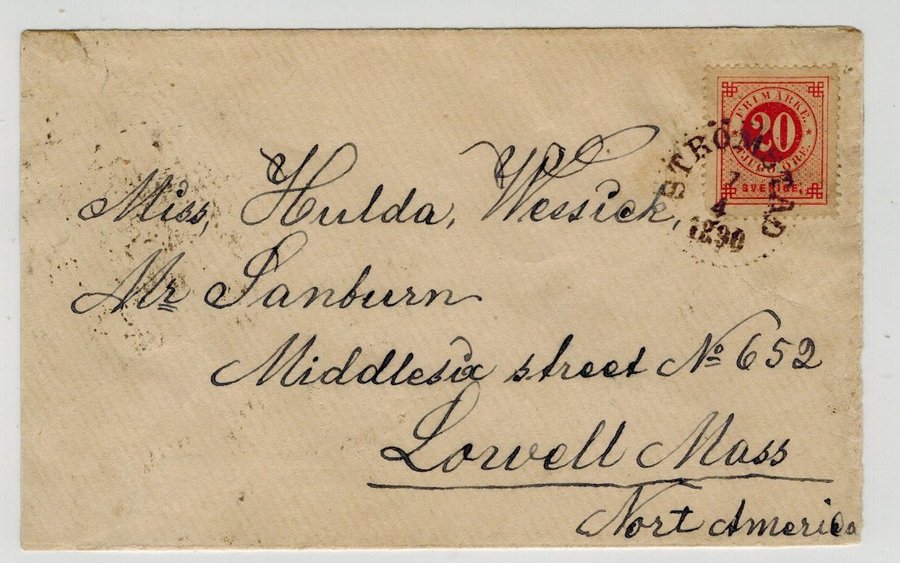 FRIMÄRKE.
20
TJUGO ÖRE.
SVERIGE.
STRÖMSTAD
7
4
1890
Miss, Hulda, Wessick,
Mr Sanburn
Middlesix street No 652
Lowell Mass
Nort America